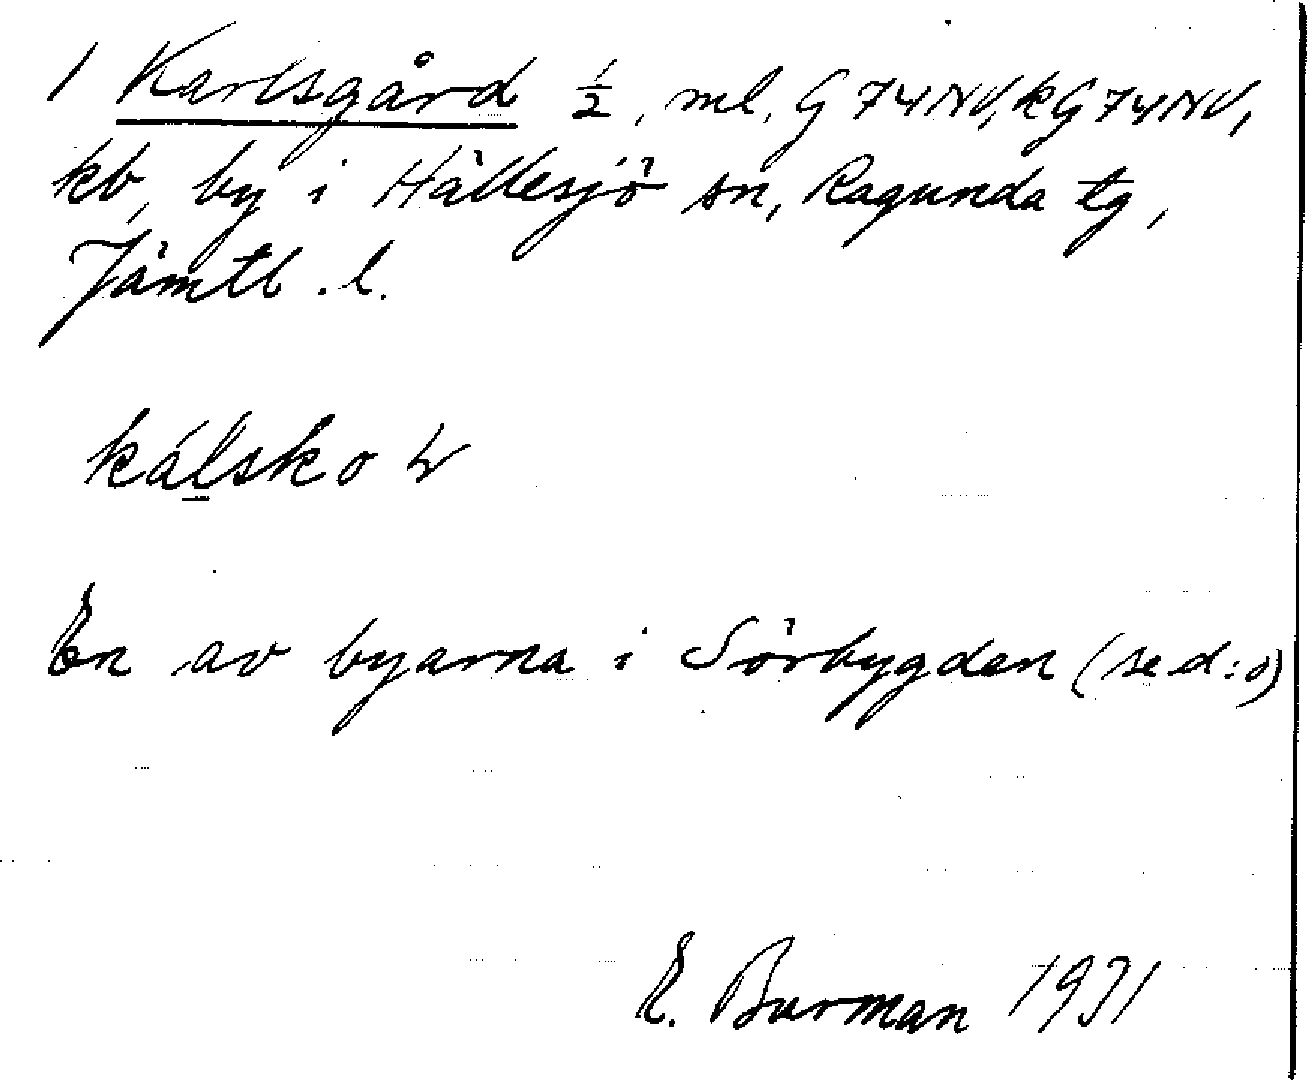 1 Karlsgård ½, ml, G 74 NV, kG 74 NV,
kb, by i Hällesjö sn, Ragunda tg,
Jämtl. l.
kálsko
En av byarna i Sörbygden (se d:o)
E. Burman 1931